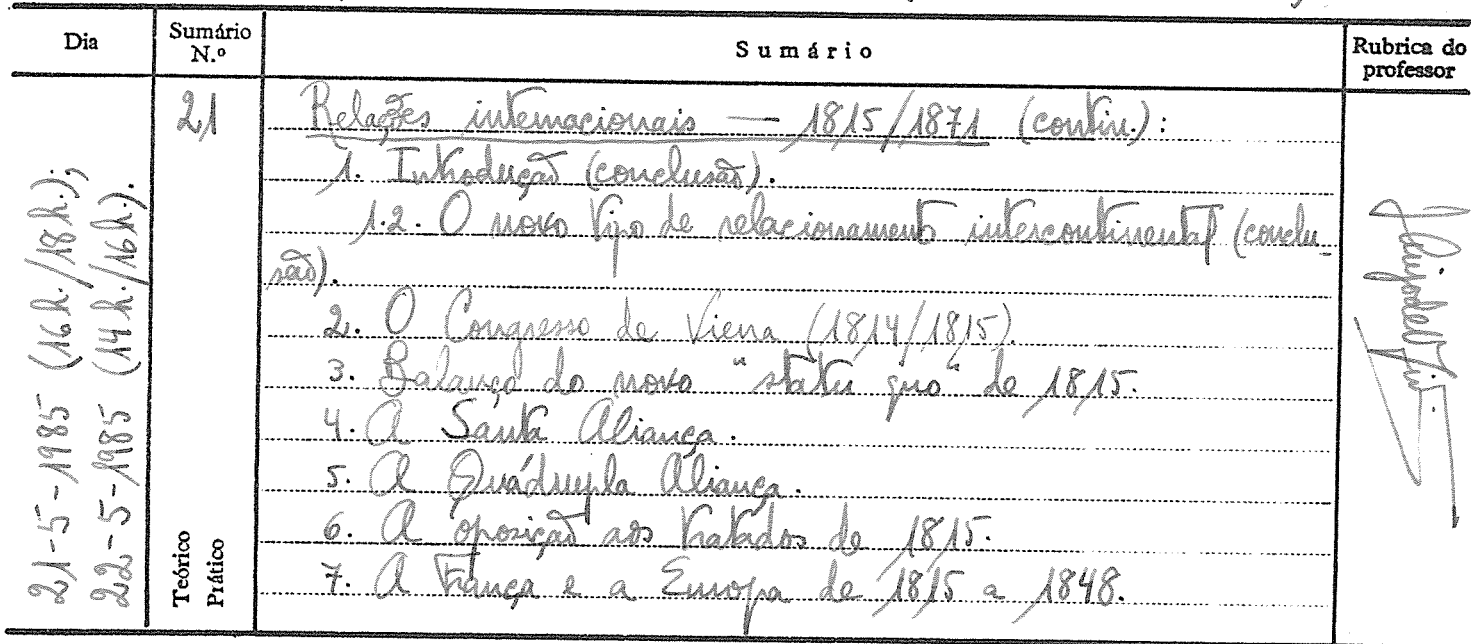 Dia
Sumário N.º
Sumário
Rubrica do professor
21-5-1985 (16h./18h.);
22-5-1985 (14h./16h.).
21
Teórico
Prático
Relações internacionais — 1815/1871 (contin.):
1. Introdução (conclusão).
1.2. O novo tipo de relacionamento intercontinental (conclu-
são).
2. O Congresso de Viena (1814/1815).
3. Balanço do novo "statu quo" de 1815.
4. A Santa Aliança.
5. A Quádrupla Aliança.
6. A oposição aos tratados de 1815.
7. A França e a Europa de 1815 a 1848.